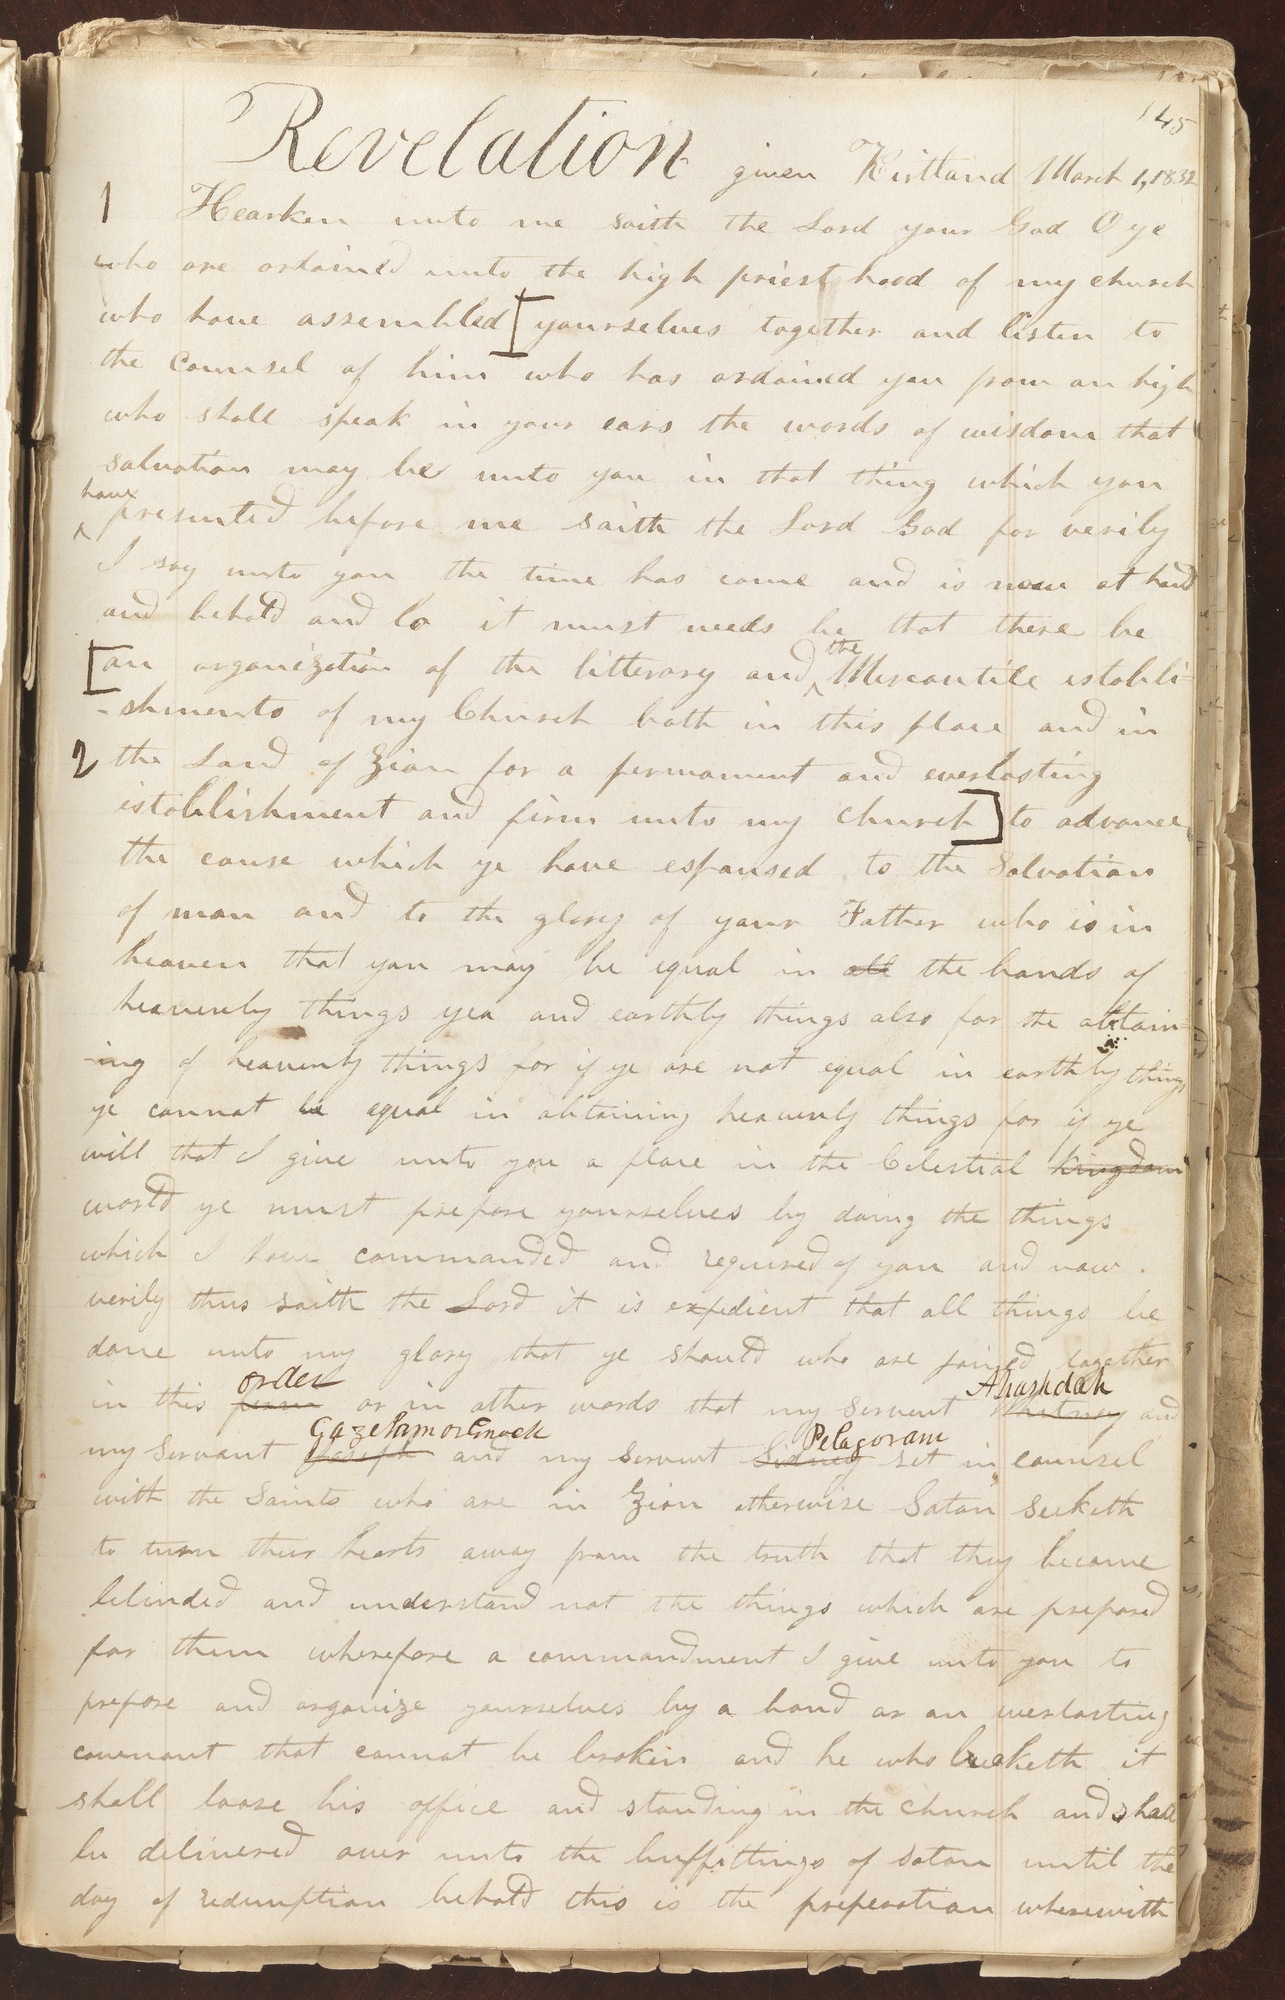 145
Revelation given Kirtland March 1, 1832
1 Hearken unto me saith the Lord your God O ye
who are ordained unto the high priest hood of my church
who have assembled [yourselves together and listen to
the counsel of him who has ordained you from on high
who shall speak in your ears the words of wisdom that
salvation may be unto you in that thing which you
have
^ presented before me saith the Lord God for verily
I say unto you the time has come and is now at hand
and behold and lo it must needs be that there be
the
[an organization of the litterary and ^ Mercantile establi=
-shments of my Church both in this place and in
2 the Land of Zion for a permanent and everlasting
establishment and firm unto my church] to advance
the cause which ye have espoused to the Salvation
of man and to the glory of your Father who is in
heaven that you may be equal in all the bands of
heavenly things yea and earthly things also for the obtain=
-ing of heavenly things for if ye are not equal in earthly things
ye cannot be equal in obtaining heavenly things for if ye
will that I give unto you a place in the Celestial kingdom
world ye must prepare yourselves by doing the things
which I have commanded and required of you and now.
verily thus saith the Lord it is expedient that all things be
done unto my glory that ye should who are joined together
order Ahashdah
in this firm or in other words that my servent Whitney and
Gazelam or Enoch Pelagoram
my servant Joseph and my servent Sidney set in counsel
with the Saints who are in Zion otherwise Satan seeketh
to turn their hearts away from the truth that they become
blinded and understand not the things which are prepared
for them wherefore a commandment I give unto you to
prepare and organize yourselves by a band or an everlasting
covenant that cannot be broken and he who breaketh it
shall loose his office and standing in the church and shall
be delivered over unto the buffittings of satan until the
day of redemption behold this is the preperation wherewith